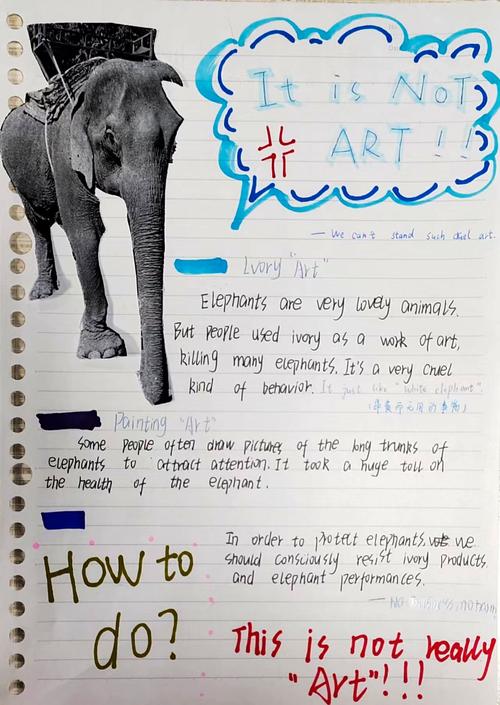 It is NOT
ART!!
— We can't stand such cruel art.
Lvory "Art"
Elephants are very lovely animals.
But people used ivory as a work of art,
killing many elephants. It's a very cruel
kind of behavior. It just like "white elephant".
Painting "Art"
Some people often draw pictures of the long trunks of
elephants to attract attention. It took a huge toll on
the health of the elephant.
How to
do?
In order to protect elephants, we
should consciously resist ivory products
and elephant performances.
— No business, no harm
This is not really
"Art"!!!